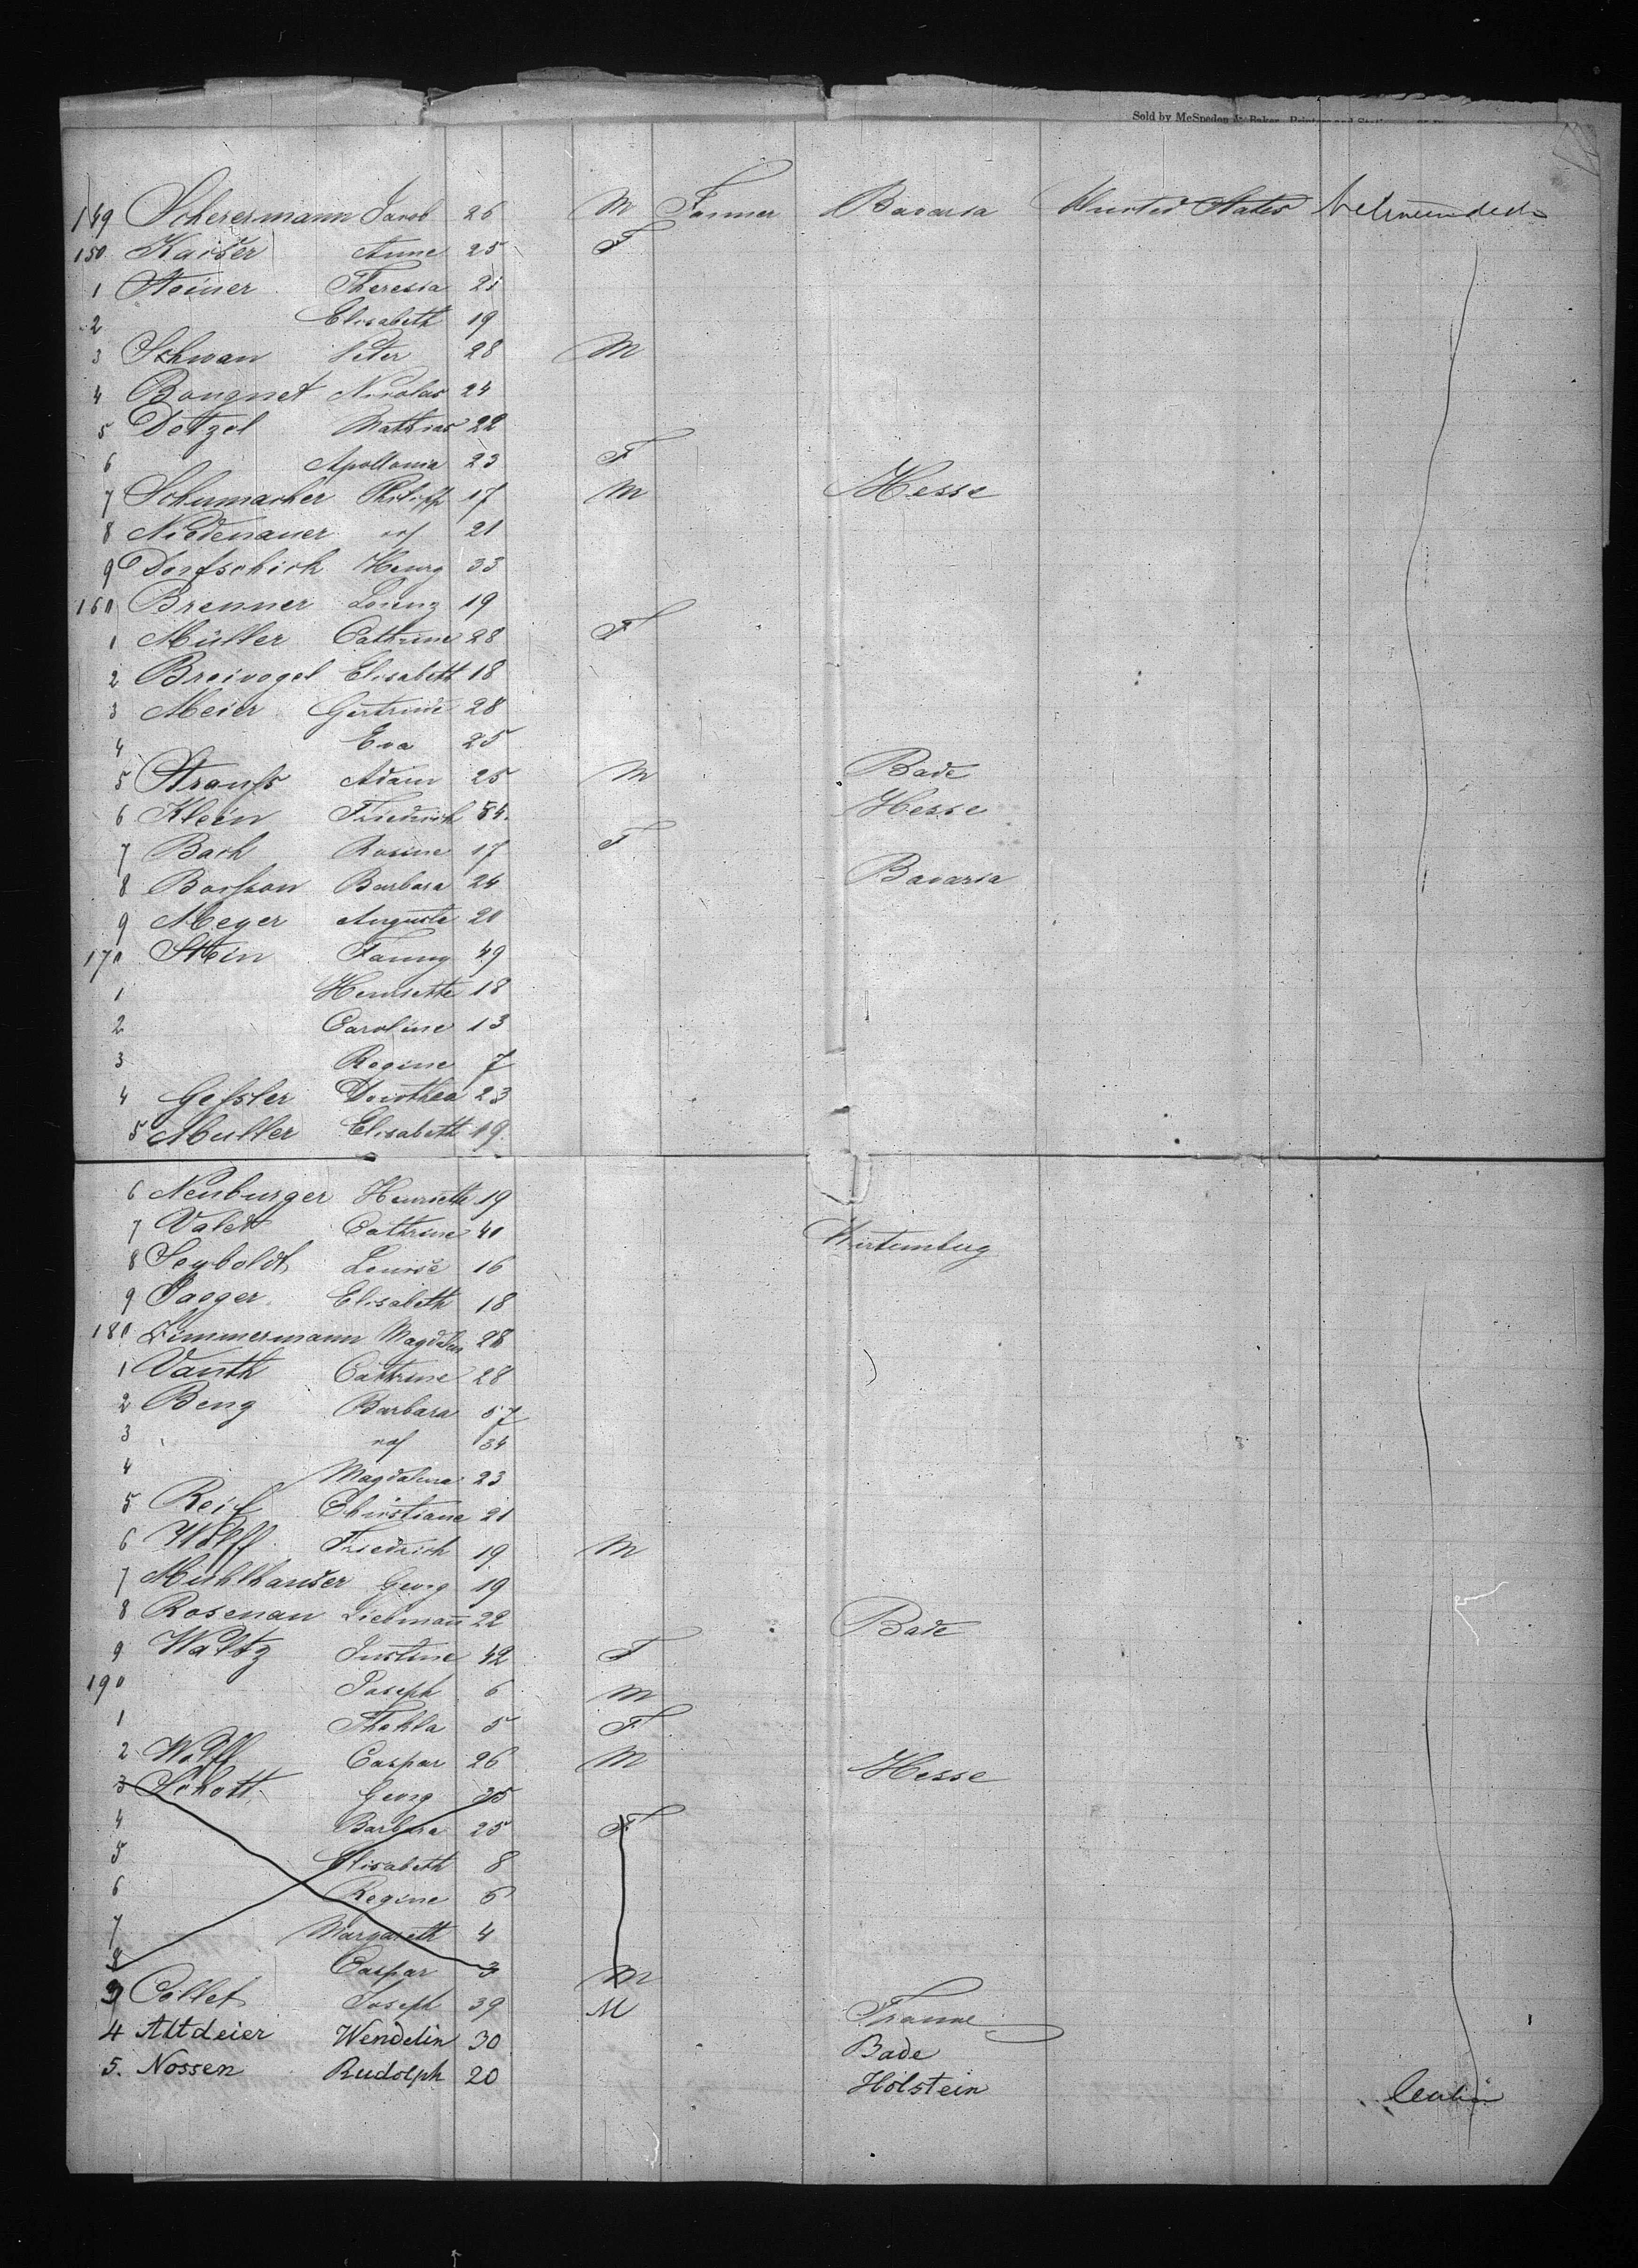 Sold by McSpedon & Baker, Printers and
149 Scherermann Jacob 26 M Farmer Bavaria United States
150 Kaiser Anne 25 F
1 Steiner Theresia 21
2 Elisabeth 19
3 Schwan Peter 28 M
4 Bougnet Nicolas 24
5 Detzel Mathias 22
6 Apollonia 23 F
7 Schumacher Philipp 17 M Hesse
8 Niedenauer 21
9 Dorfschich Henry 33
160 Brenner Lorenz 19
1 Müller Cathrine 28 F
2 Breivogel Elisabeth 18
3 Meier Gertrude 28
4 Eva 25
5 Straufs Adam 25 M Bade
6 Klein Friedrich 54. Hesse
7 Bach Rosine 17 F
8 Barbara 24 Bavaria
9 Meyer Auguste 20
170 Stein Fanny 49
1 Henriette 18
2 Caroline 13
3 Regine 7
4 Gefsler Dorothea 23
5 Muller Elisabeth 19
6 Neuburger Henriette 19
7 Valet Cathrine 40 Wirtemberg
8 Seyboldt Louise 16
9 Jaeger Elisabeth 18
180 Zimmermann Magdalen 28
1 Vauth Cathrine 28
2 Beng Barbara 57
3 34
4 Magdalena 23
5 Reif Christiane 21
6 Wolff Friedrich 19 M
7 Mühlhauser Georg 19
8 Rosenau Liebmann 22 Bade
9 Waltz Justine 42 F
190 Joseph 6 M
1 Thekla 5 F
2 Wolff Caspar 26 M Hesse
3 Schott Georg 35
4 Barbara 25 F
5 Elisabeth 8
6 Regine 6
7 Margareth 4
8 Caspar 3 M
3 Collet Joseph 39 M France
4 Altdeier Wendelin 30 Bade
5. Nossen Rudolph 20 Holstein